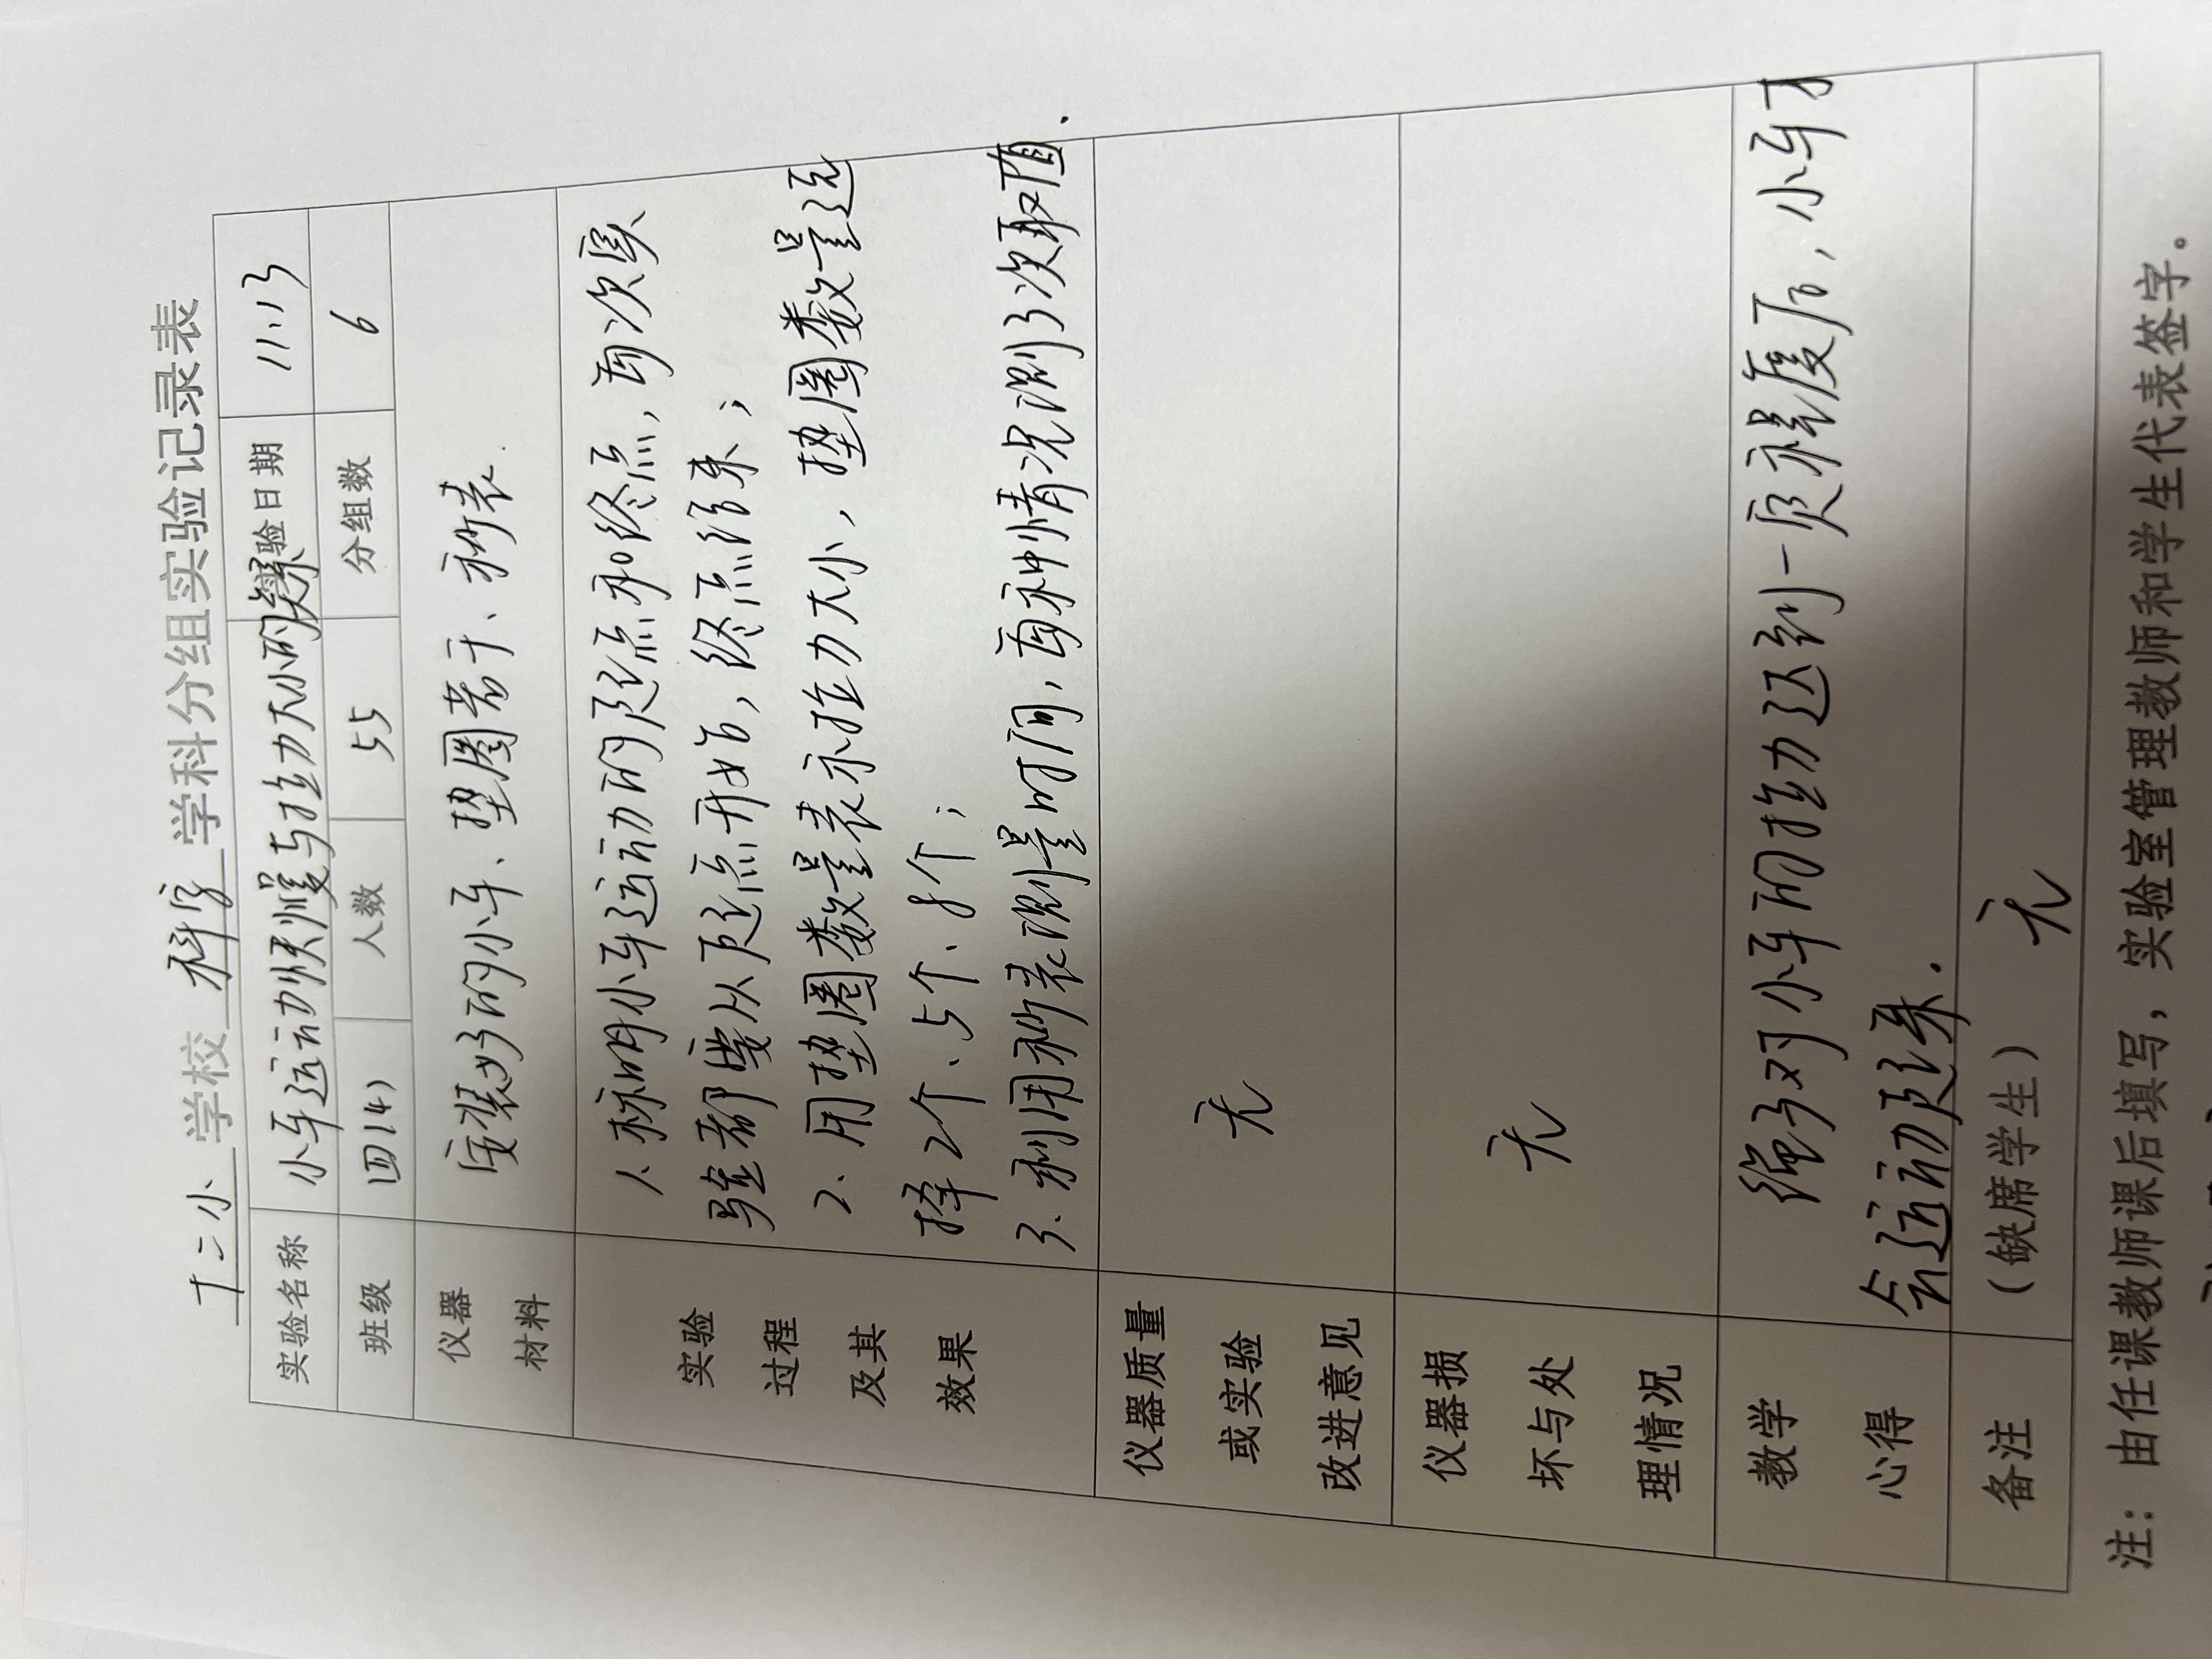 十二小 学校 科学 学科分组实验记录表
实验名称 小车运动快慢与拉力大小的关系 验日期 11.13
班级 四(4) 人数 55 分组数 6
仪器材料 安装好的小车、垫圈若干、秒表.
实验过程及其效果
1. 标明小车运动的起点和终点,每次实
验都要从起点开始,终点结束;
2. 用垫圈数量表示拉力大小,垫圈数量选
择2个、5个、8个;
3. 利用秒表测量时间,每种情况测3次取值.
仪器质量或实验改进意见 无
仪器损坏与处理情况 无
教学心得 绳子对小车的拉力达到一定程度后,小车才
会运动起来.
备注 (缺席学生) 无
注:由任课教师课后填写,实验室管理教师和学生代表签字。